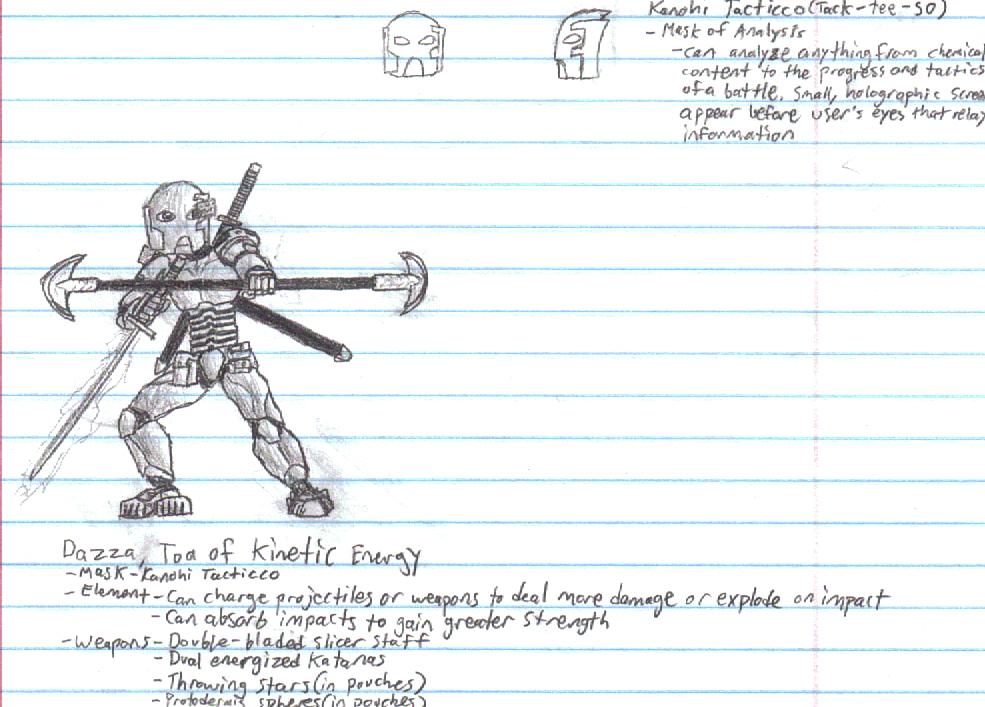 Kanohi Tacticco (Tack-tee-so)
- Mask of Analysis
-can analyze anything from chemical
content to the progress and tactics
of a battle. Small, holographic scree
appear before user's eyes that relay
information
Dazza, Toa of Kinetic Energy
-Mask-Kanohi Tacticco
-Element-Can charge projectiles or weapons to deal more damage or explode on impact
-Can absorb impacts to gain greater strength
-Weapons-Double-bladed slicer staff
-Dual energized Katanas
-Throwing stars (in pouches)
-Protodermis spheres (in pouches)